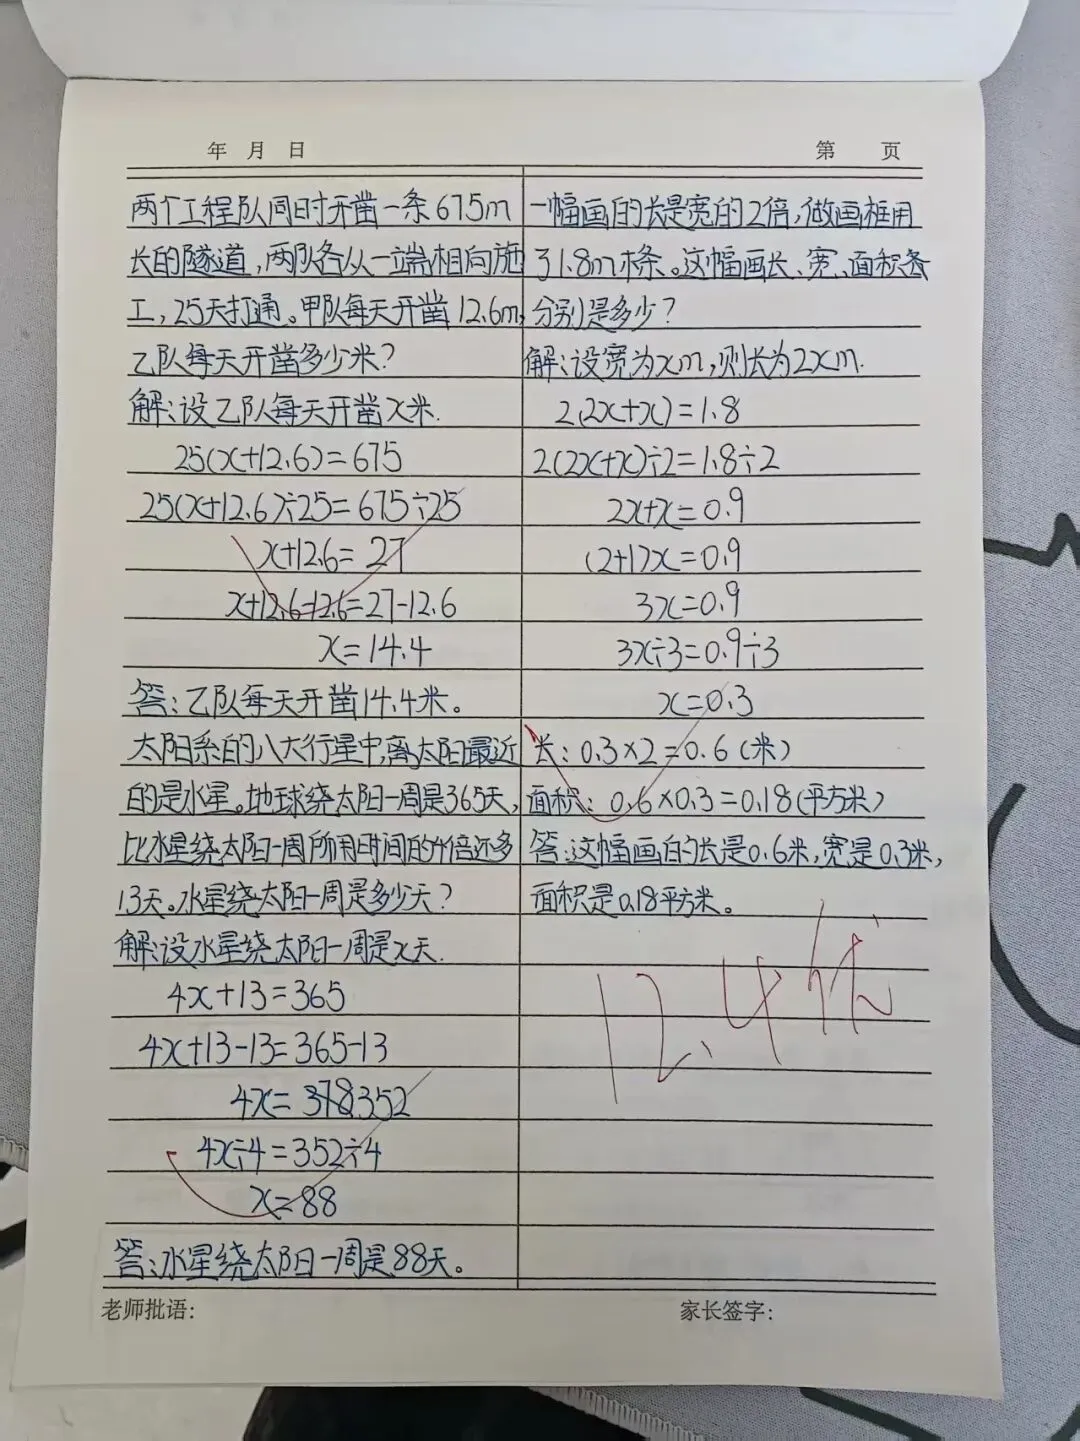 年 月 日
第 页
两个工程队同时开凿一条675m
长的隧道,两队各从一端相向施
工,25天打通。甲队每天开凿12.6m,
乙队每天开凿多少米?
解:设乙队每天开凿x米.
25(x+12.6)=675
25(x+12.6)÷25=675÷25
x+12.6=27
x+12.6-12.6=27-12.6
x=14.4
答:乙队每天开凿14.4米。
太阳系的八大行星中,离太阳最近
的是水星。地球绕太阳一周是365天,
比水星绕太阳一周所用时间的4倍还多
13天。水星绕太阳一周是多少天?
解:设水星绕太阳一周是x天.
4x+13=365
4x+13-13=365-13
4x=352
4x÷4=352÷4
x=88
答:水星绕太阳一周是88天。
一幅画的长是宽的2倍,做画框用
了1.8m木条。这幅画长、宽、面积各
分别是多少?
解:设宽为xm,则长为2xm.
2(2x+x)=1.8
2(2x+x)÷2=1.8÷2
2x+x=0.9
(2+1)x=0.9
3x=0.9
3x÷3=0.9÷3
x=0.3
长:0.3×2=0.6(米)
面积:0.6×0.3=0.18(平方米)
答:这幅画的长是0.6米,宽是0.3米,
面积是0.18平方米。
12.4优
老师批语:
家长签字: